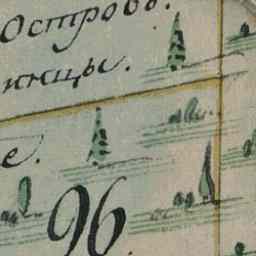 Островъ.
инцы.
е.
96.